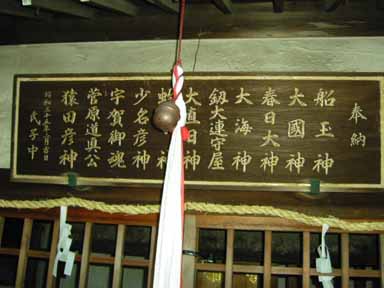 奉納
船玉神
大國神
春日大神
大海神
釼大連守屋
大直日神
神
少名彦神
宇賀御魂
菅原道真公
猿田彦神
昭和 年 月吉日
氏子中